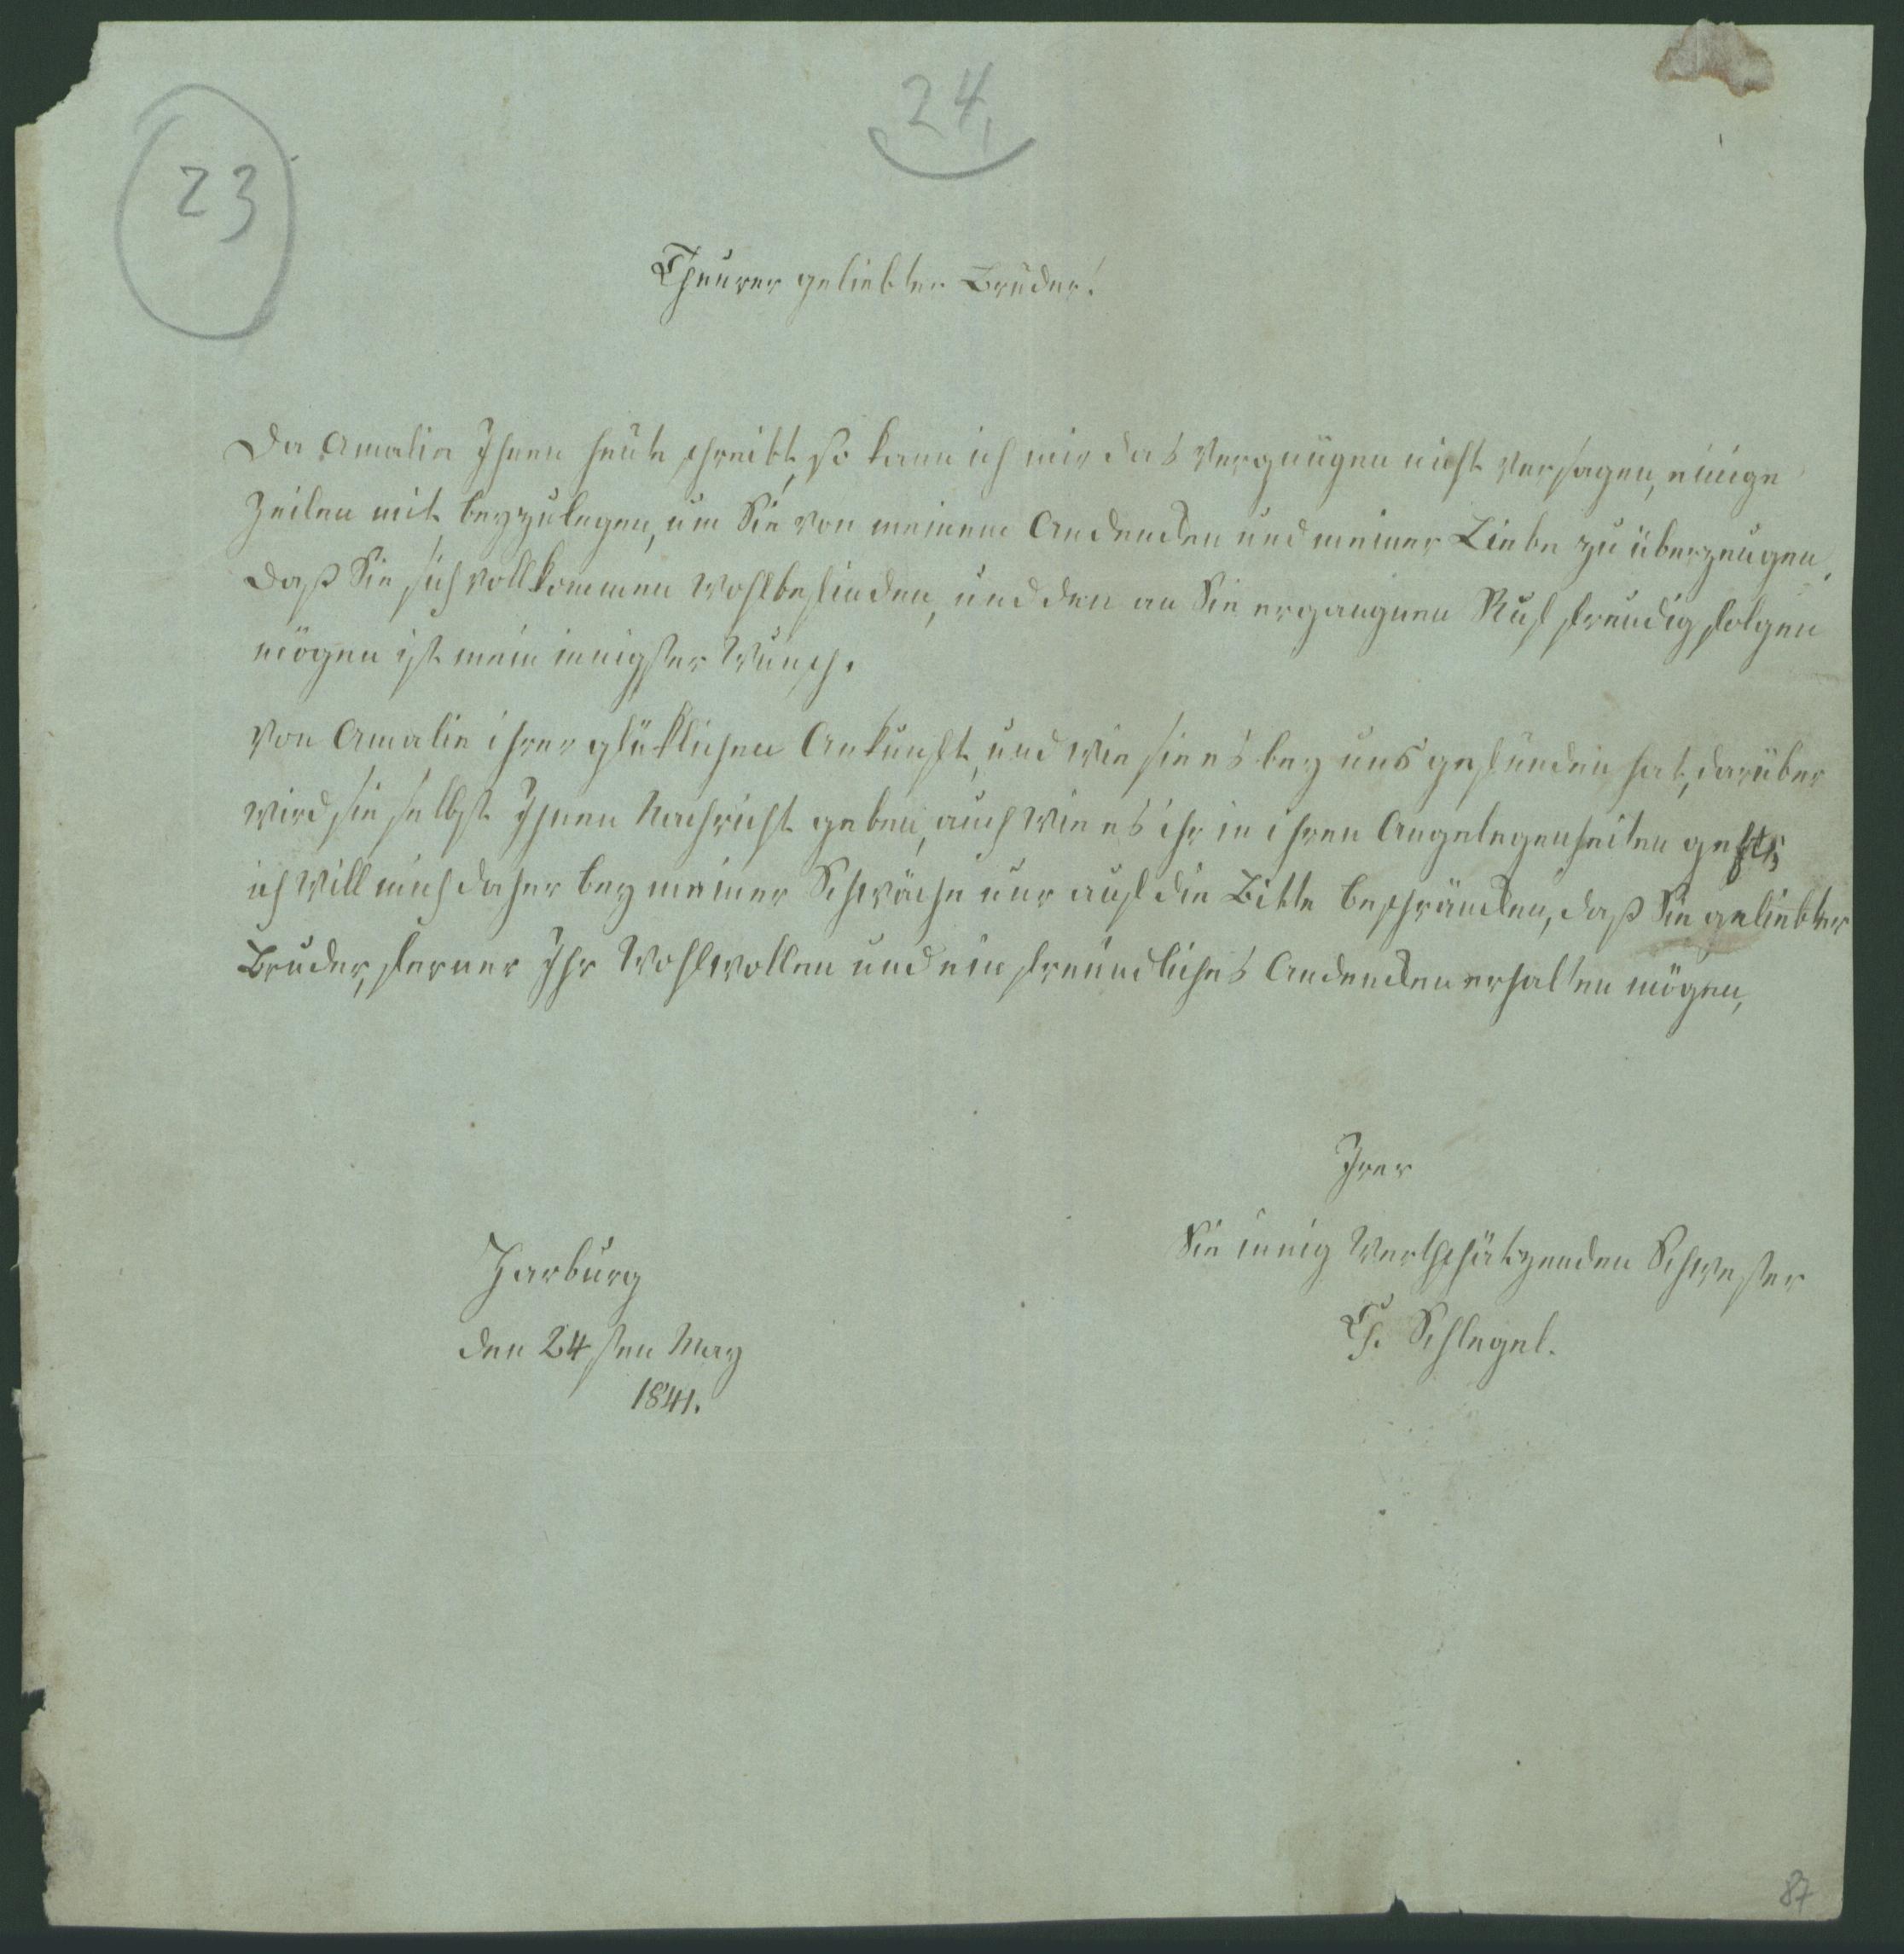 24,
23
Theurer geliebter Bruder!
Da Amalie Ihnen heute schreibt, so kann ich mir das Vergnügen nicht versagen, einige
Zeilen mit beyzulegen, um Sie von meinem Andencken und meiner Liebe zu überzeugen,
daß Sie sich vollkommen wohlbefinden, und den an Sie ergangnen Ruf freudig folgen
mögen ist mein innigster Wunsch.
Von Amalie ihrer glüklichen Ankunft, und wie sie es bey uns gefunden hat, darüber
wird sie selbst Ihnen Nachricht geben, auch wie es ihr in ihren Angelegenheiten geht,
ich will mich daher bey meiner Schwäche nur auf die Bitte beschräncken, daß Sie geliebter
Bruder, ferner Ihr Wohlwollen und ein freundliches Andencken erhalten mögen,
Irer
Sie innig Werthschätzenden Schwester
Ch. Schlegel.
Harburg
den 24sten May
1841.
87